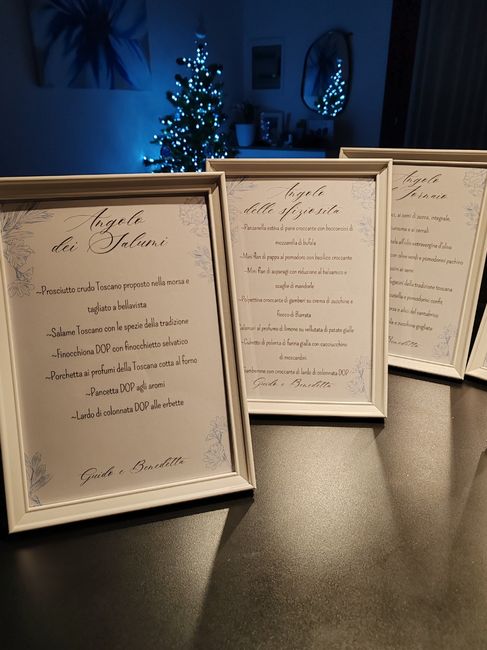 Angolo
dei Salumi
~Prosciutto crudo Toscano proposto nella morsa e
tagliato a bellavista
~Salame Toscano con le spezie della tradizione
~Finocchiona DOP con finocchietto selvatico
~Porchetta ai profumi della Toscana cotta al forno
~Pancetta DOP agli aromi
~Lardo di colonnata DOP alle erbette
Guido e Benedetta
Angolo
delle sfiziosità
~Panzanella estiva di pane croccante con bocconcini di
mozzarella di bufala
~Mini flan di pappa al pomodoro con basilico croccante
~Mini flan di asparagi con riduzione al balsamico e
scaglie di mandorle
~Polpettina croccante di gamberi su crema di zucchine e
fiocco di Burrata
Calamari al profumo di limone su vellutata di patate gialle
di polenta di farina gialla con cacciucchino
di moscardini
croccante di lardo di colonnata DOP
Guido e Benedetta
Angolo
Fornaio
ai semi di zucca, integrale,
all'olio extravergine d'oliva
con olive verdi e pomodorini pachino
ai semi
della tradizione toscana
e pomodorini confit
e alici del cantabrico
croccante con grigliate
Benedetta